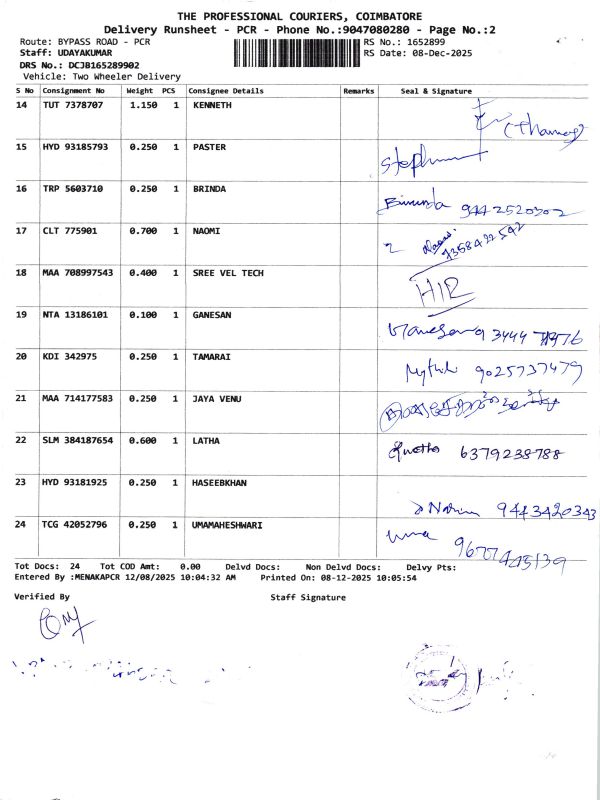 THE PROFESSIONAL COURIERS, COIMBATORE
Delivery Runsheet - PCR - Phone No.:9047080280 - Page No.:2
Route: BYPASS ROAD - PCR RS No.: 1652899
Staff: UDAYAKUMAR RS Date: 08-Dec-2025
DRS No.: DCJB165289902
Vehicle: Two Wheeler Delivery
S No Consignment No Weight PCS Consignee Details Remarks Seal & Signature
14 TUT 7378707 1.150 1 KENNETH
15 HYD 93185793 0.250 1 PASTER
16 TRP 5603710 0.250 1 BRINDA 9442520302
17 CLT 775901 0.700 1 NAOMI 7358422592
18 MAA 708997543 0.400 1 SREE VEL TECH
19 NTA 13186101 0.100 1 GANESAN
20 KDI 342975 0.250 1 TAMARAI 9025737479
21 MAA 714177583 0.250 1 JAYA VENU
22 SLM 384187654 0.600 1 LATHA 6379238788
23 HYD 93181925 0.250 1 HASEEBKHAN 9443420343
24 TCG 42052796 0.250 1 UMAMAHESHWARI uma
Tot Docs: 24 Tot COD Amt: 0.00 Delvd Docs: Non Delvd Docs: Delvy Pts:
Entered By :MENAKAPCR 12/08/2025 10:04:32 AM Printed On: 08-12-2025 10:05:54
Verified By Staff Signature